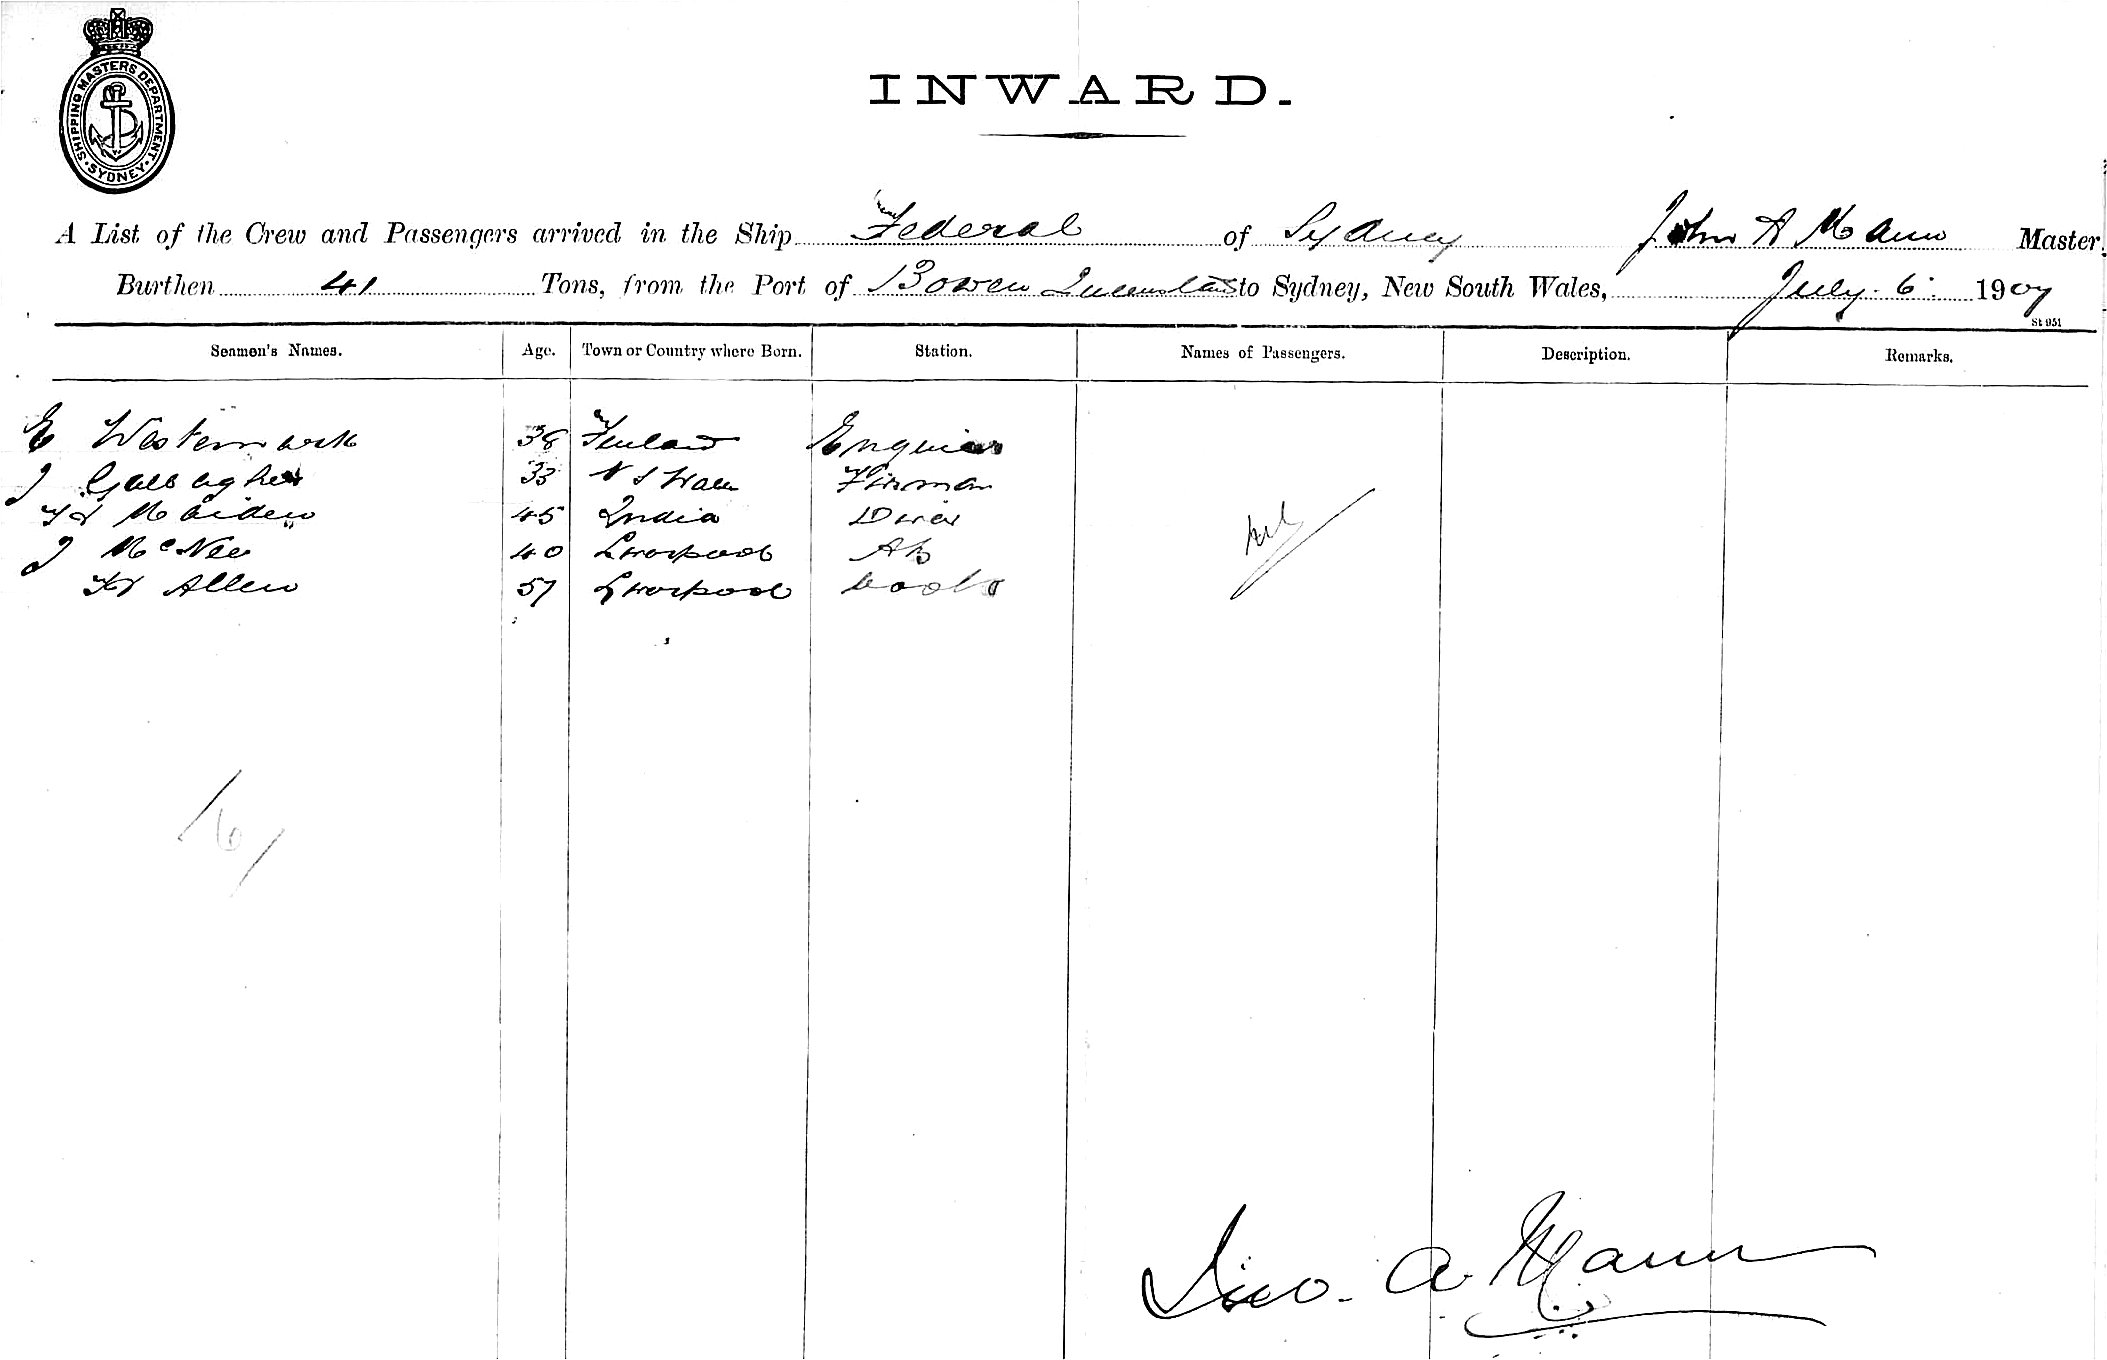 SHIPPING MASTERS DEPARTMENT · SYDNEY ·
INWARD.
A List of the Crew and Passengers arrived in the Ship Federal of Sydney John A Mann Master.
Burthen 41 Tons, from the Port of Bowen Queensland to Sydney, New South Wales, July 6 1907
St 951
Seamen's Names. Age. Town or Country where Born. Station. Names of Passengers. Description. Remarks.
E Westermark 38 Finland Engineer
J Gallagher 33 N S Wales Fireman
Maiden 45 India Diver
J McNee 40 Liverpool AB
Allen 57 Liverpool Cook
Nil
6
Jno. A Mann